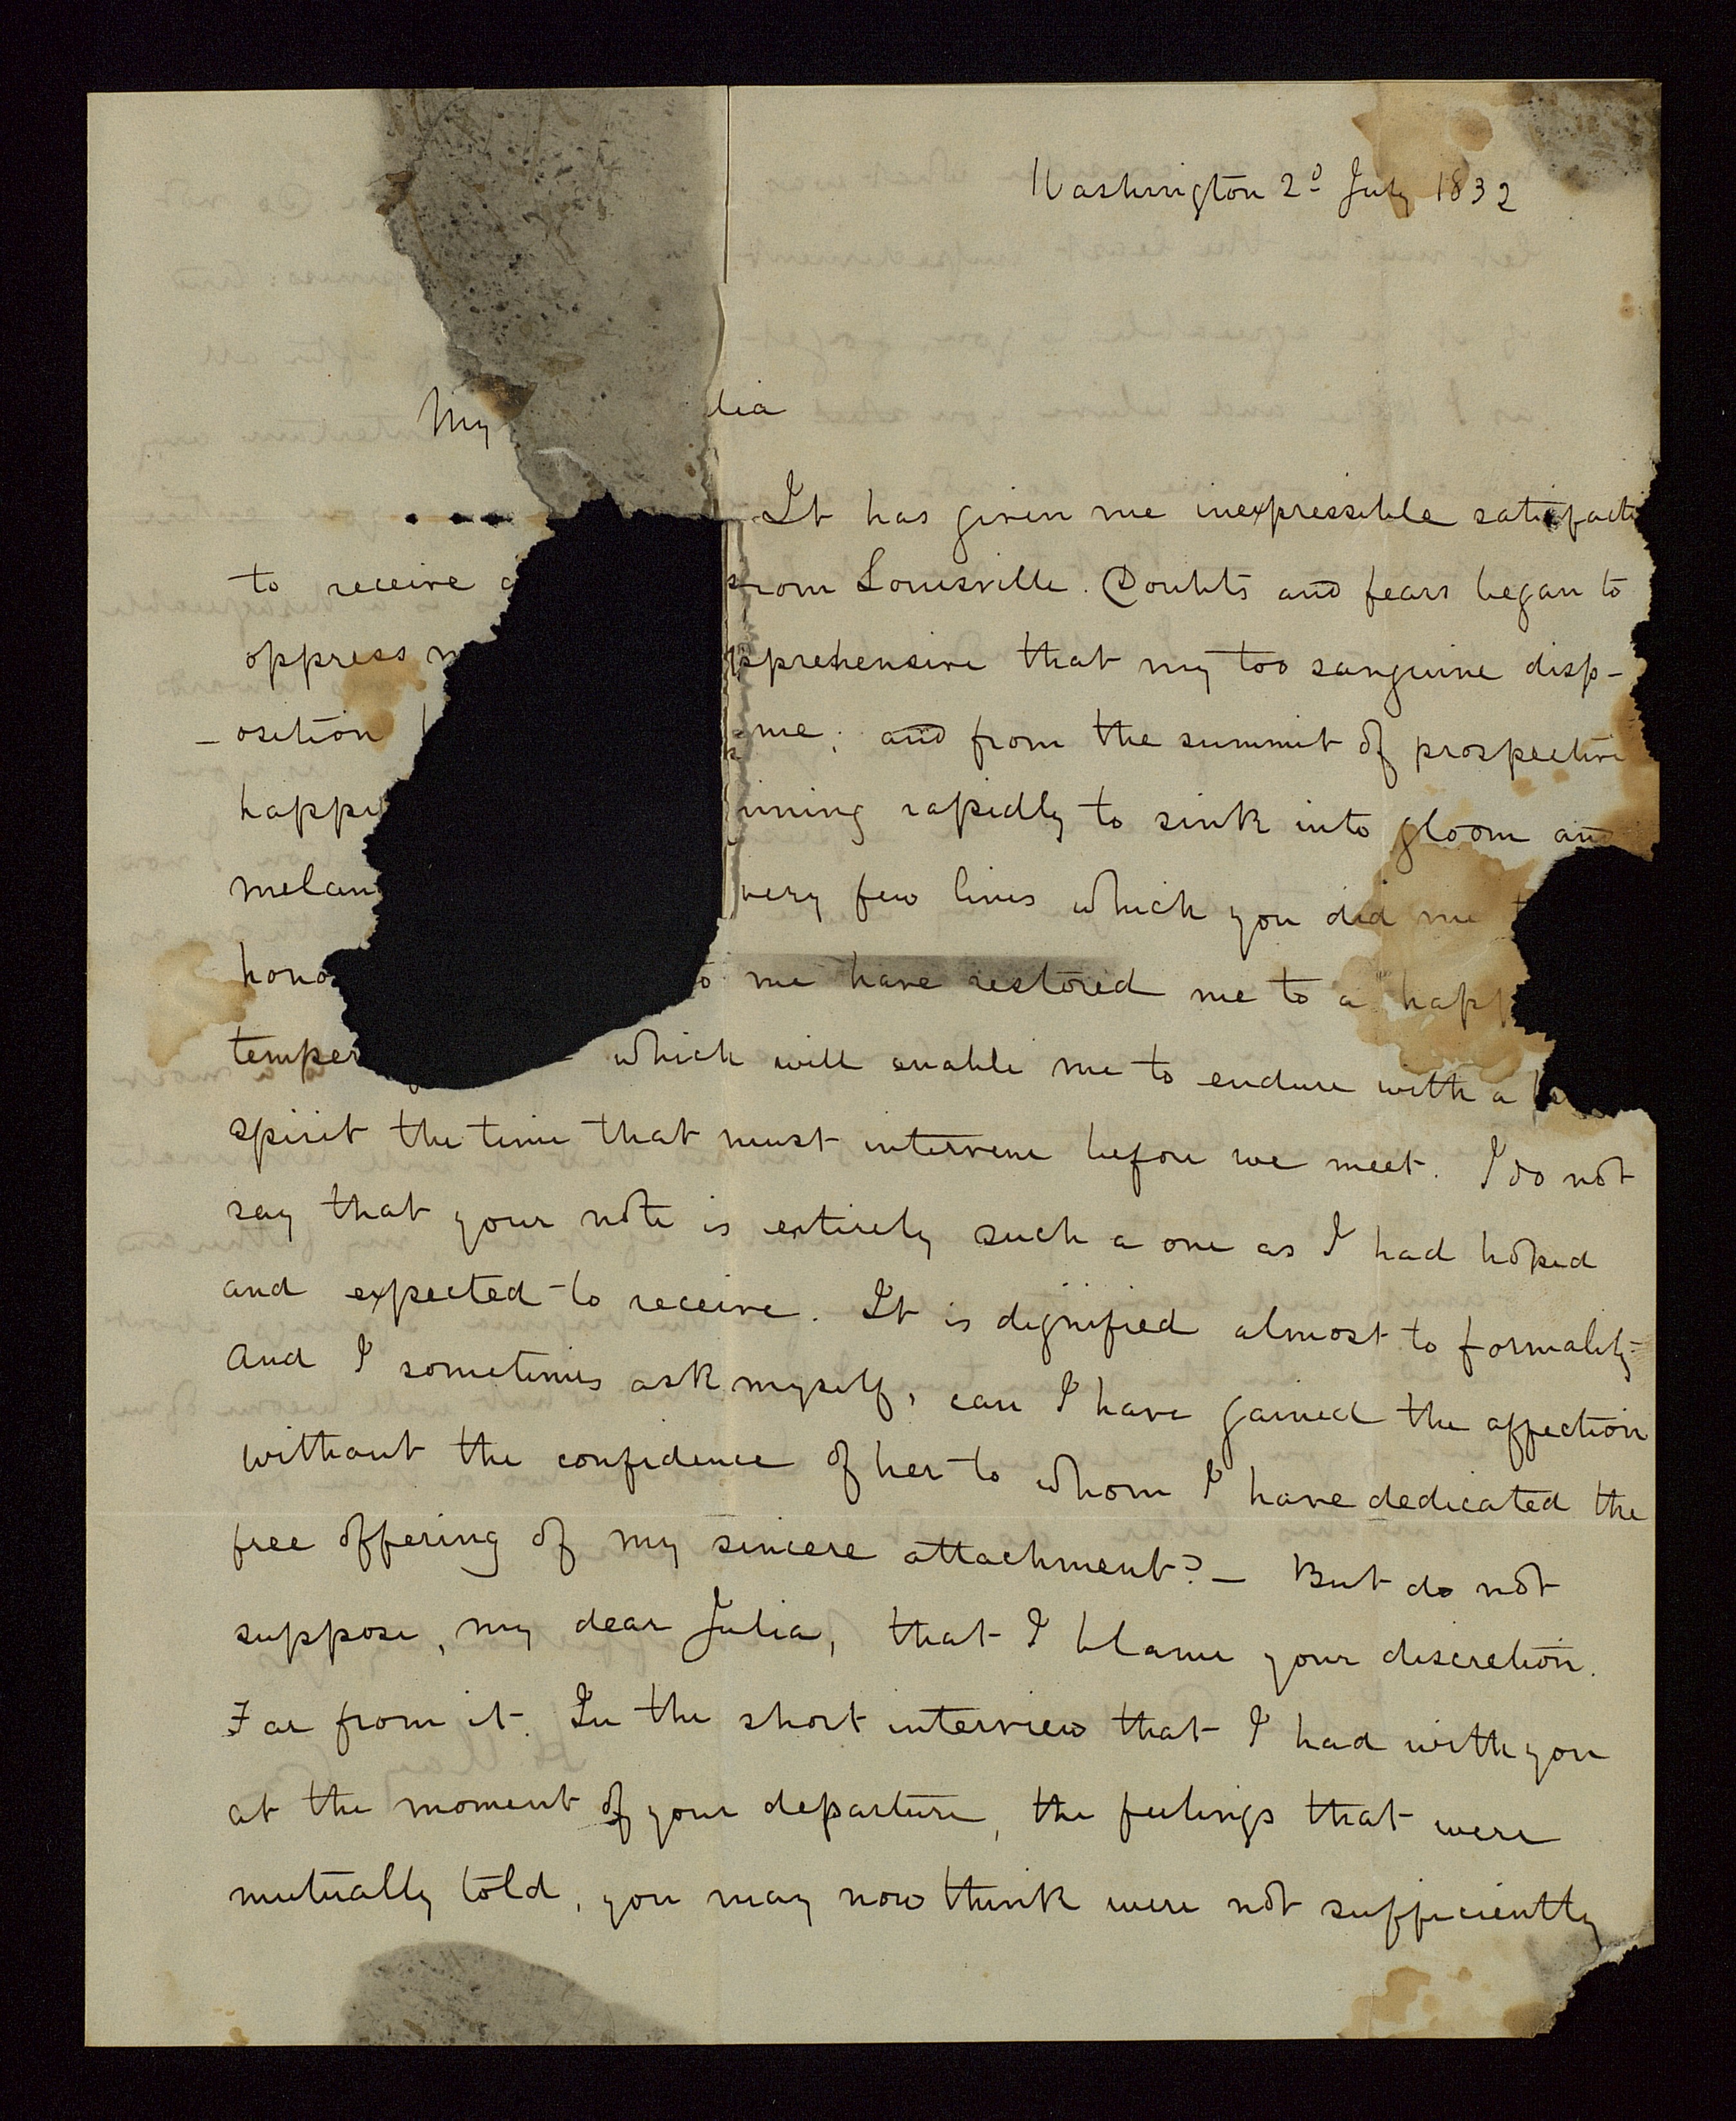 Washington 2d July 1832
My lia
It has given me inexpressible satisfacti
to receive from Louisville. Doubts and fears began to
oppress pprehensive that my too sanguine disp-
-osition me; and from the summit of prospective
happi nning rapidly to sink into gloom and
melan very few lines which you did me
hono me have restored me to a happ
temper which will enable me to endure with a
spirit the time that must intervene before we meet. I do not
say that your note is entirely such a one as I had hoped
and expected to receive. It is dignified almost to formality
And I sometimes ask myself, can I have gained the affection
without the confidence of her to whom I have dedicated the
free offering of my sincere attachment?— But do not
suppose, my dear Julia, that I blame your discretion.
Far from it. In the short interview that I had with you
at the moment of your departure, the feelings that were
mutually told, you may now think were not sufficiently